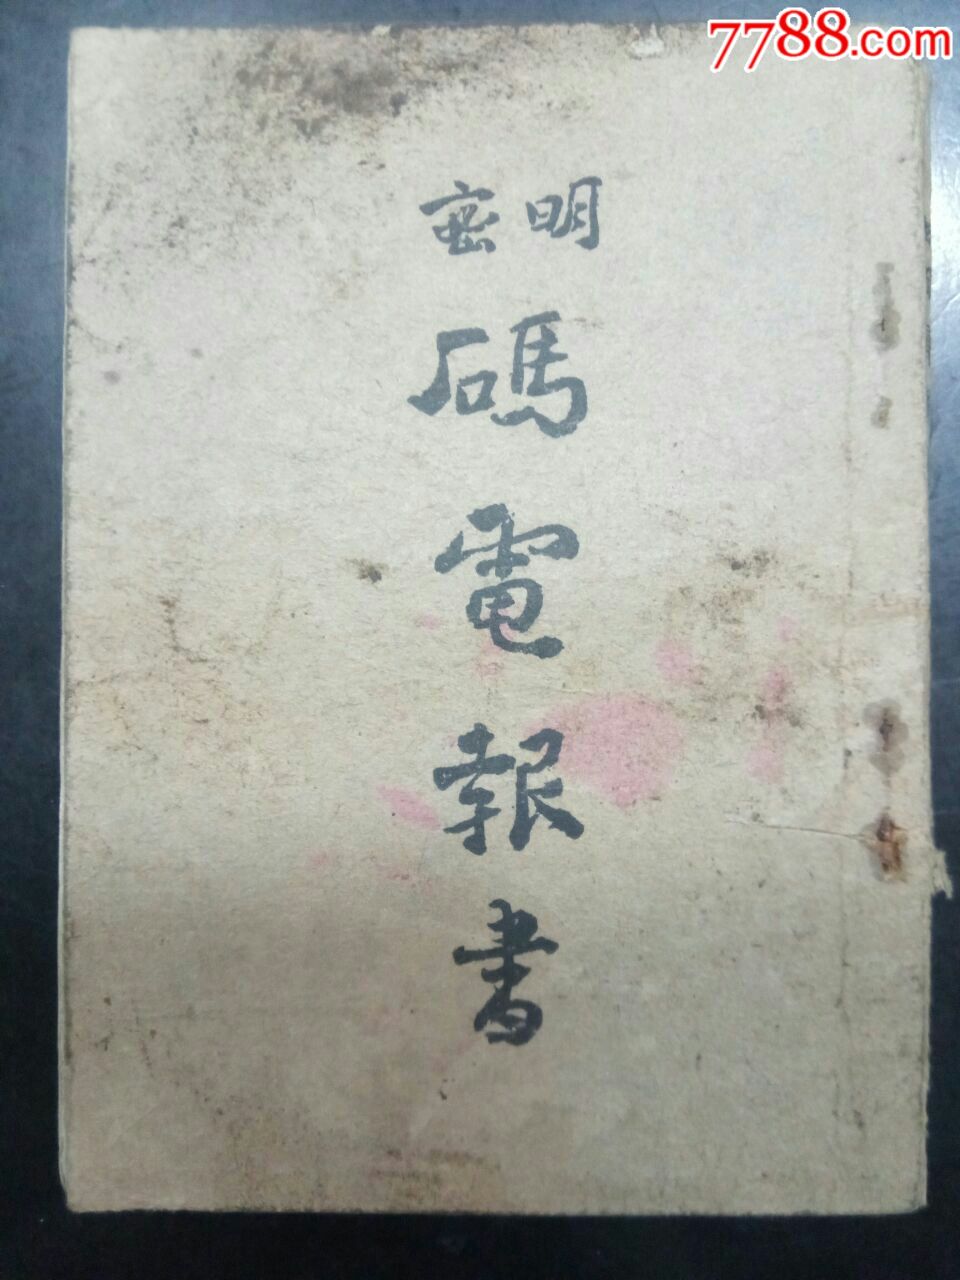 7788.com
明密
碼電報書